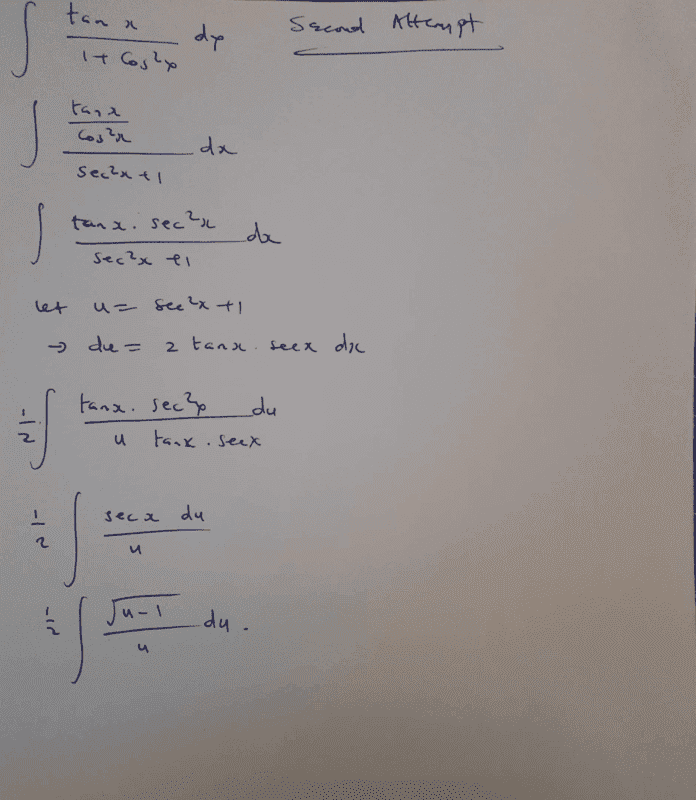 ∫ tan x / (1 + Cos²x) dx Second Attempt
∫ (tan x / Cos²x) / (sec²x + 1) dx
∫ tan x . sec²x / (sec²x + 1) dx
let u = sec²x + 1
→ du = 2 tanx . secx dx
1/2 ∫ tanx . sec²x du / (u tanx . secx)
1/2 ∫ secx du / u
1/2 ∫ √(u-1) / u du .